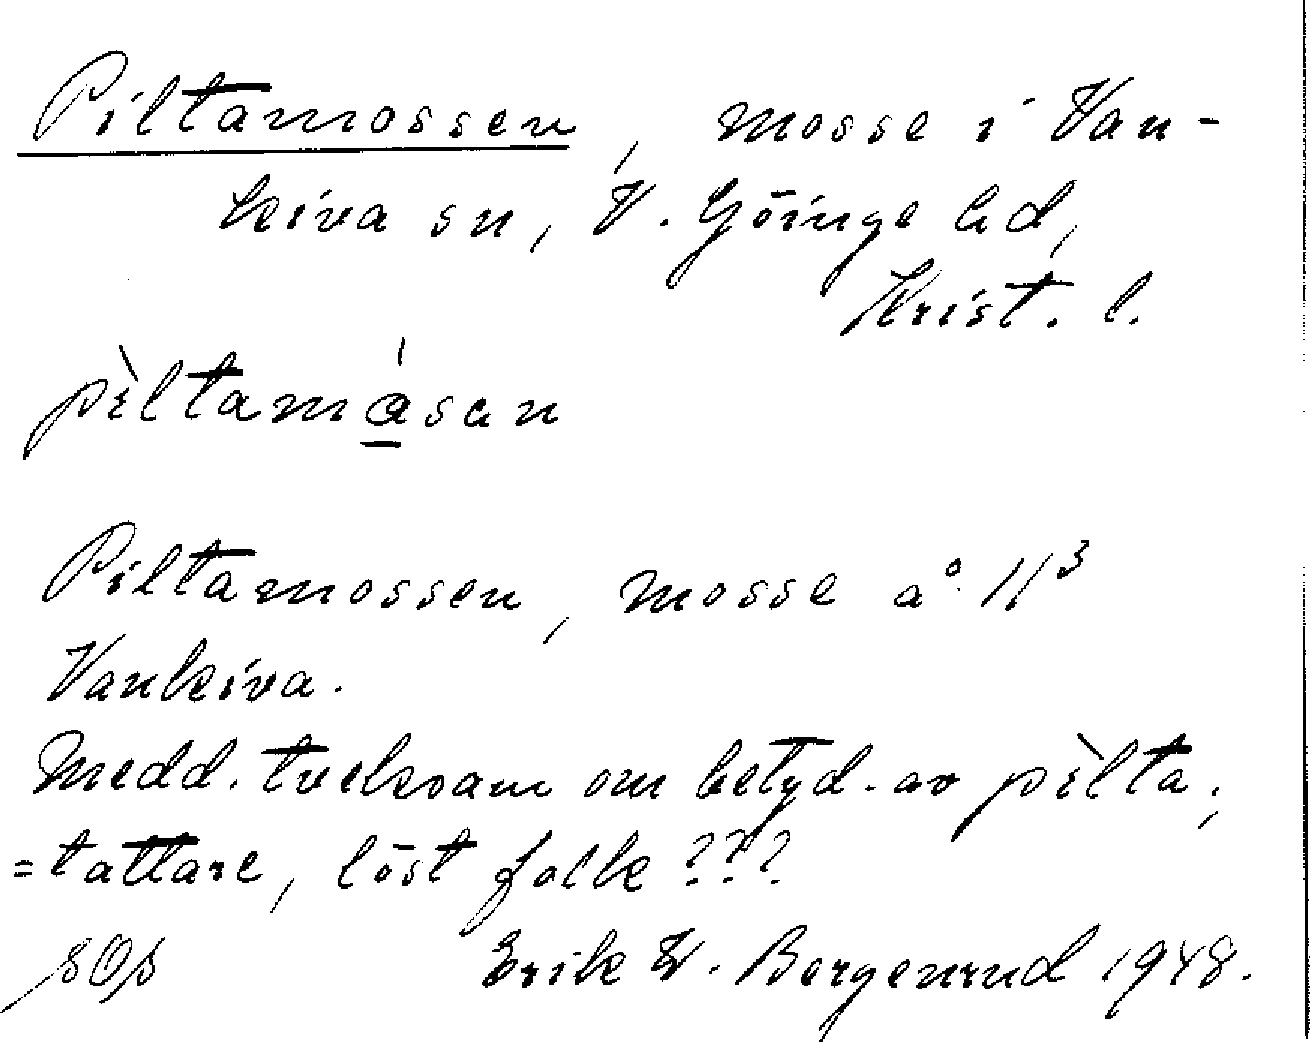 Piltamossen, mosse i Van-
kiva sn, V. Göinge hd,
Krist. l.
pìltamåsan
Piltamossen, mosse å H³
Vankiva.
Medd. tveksam om betyd. av pìlta,
=tattare, löst folk ???
Erik W. Bergenrud 1948.